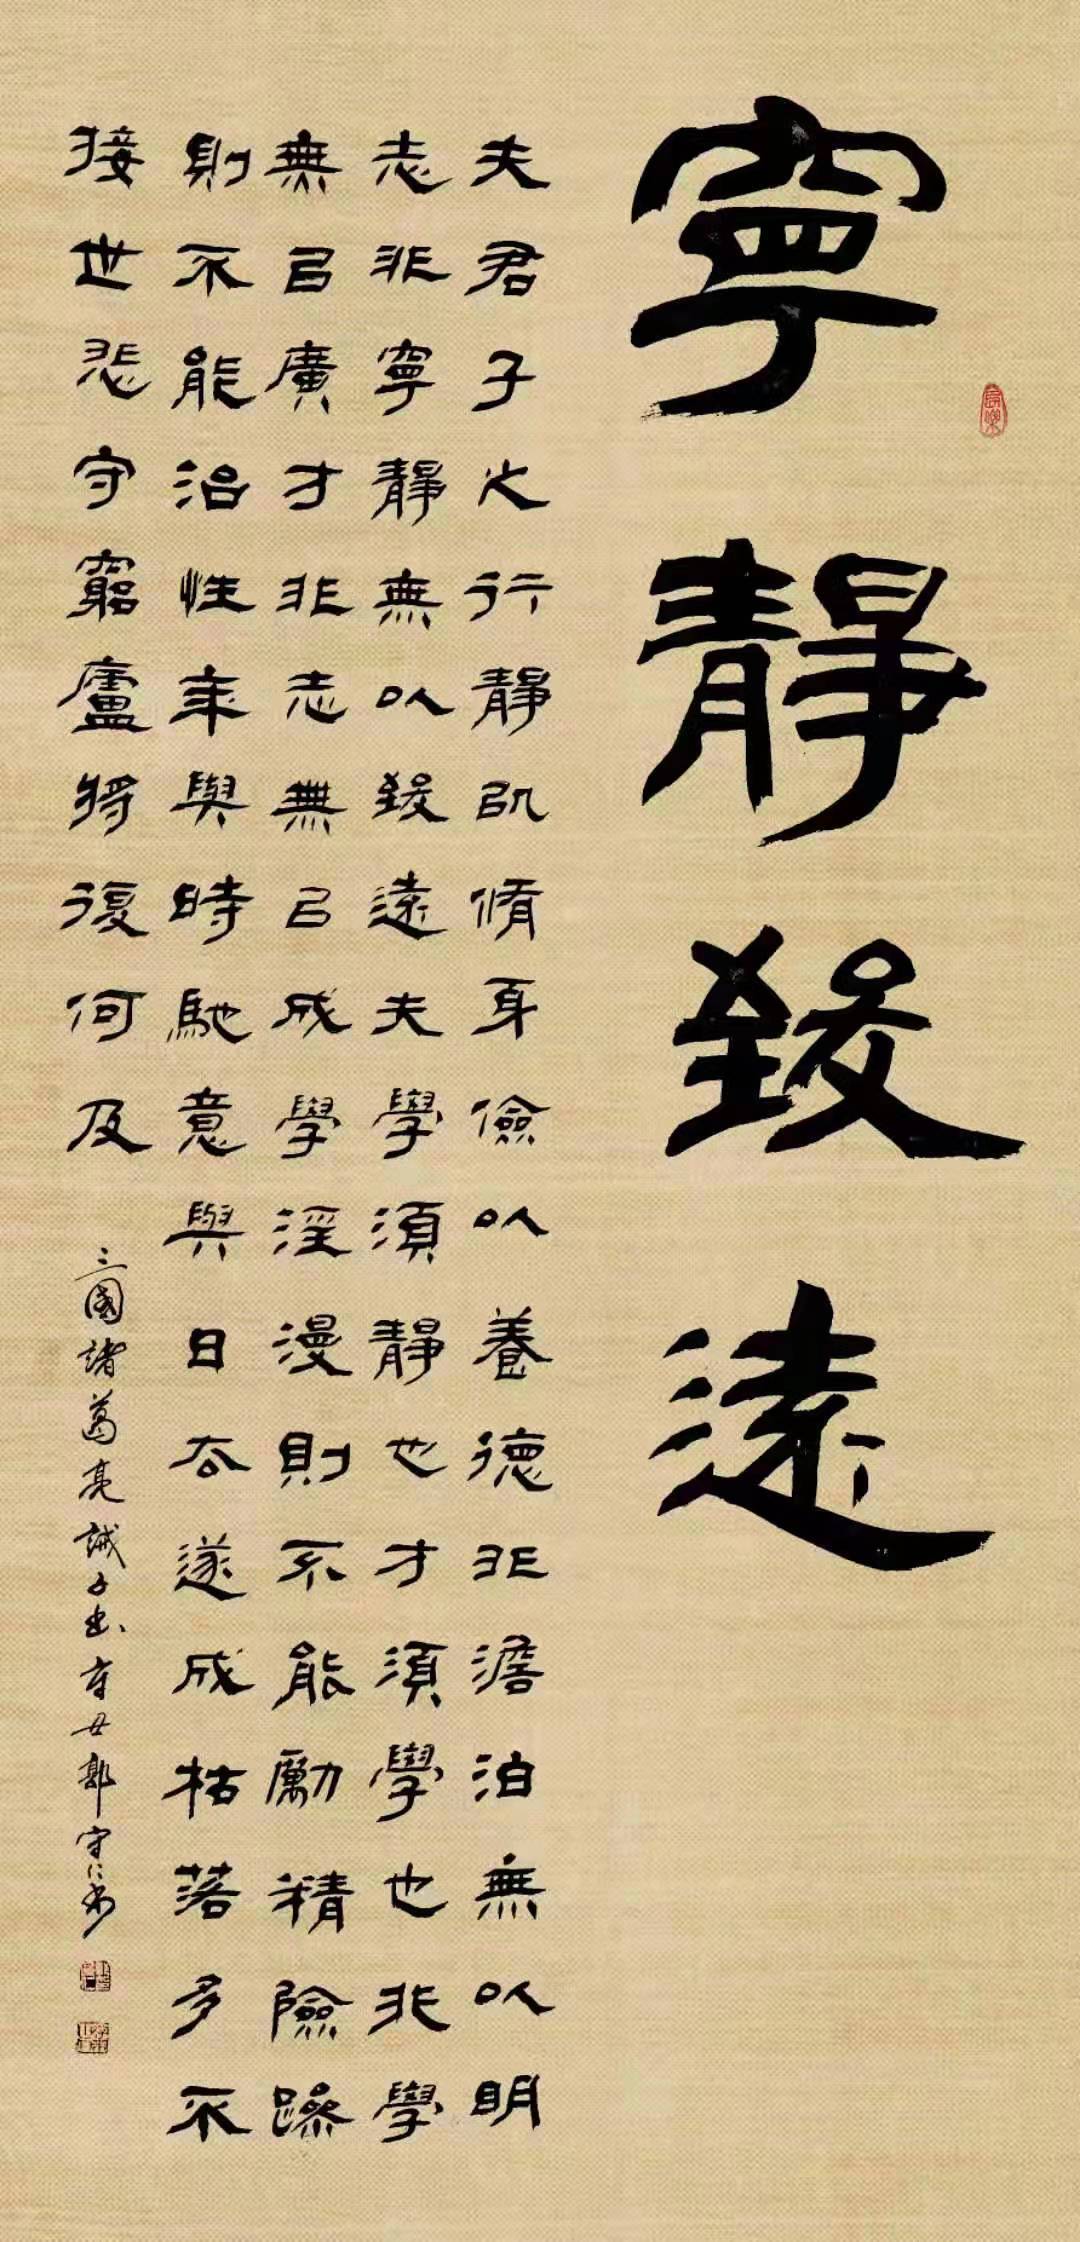 寧靜致遠
夫君子之行靜以脩身儉以養德非澹泊無以明
志非寧靜無以致遠夫學須靜也才須學也非學
無以廣才非志無以成學淫漫則不能勵精險躁
則不能治性年與時馳意與日去遂成枯落多不
接世悲守窮廬將復何及
三國諸葛亮誡子書辛丑郭守仁書